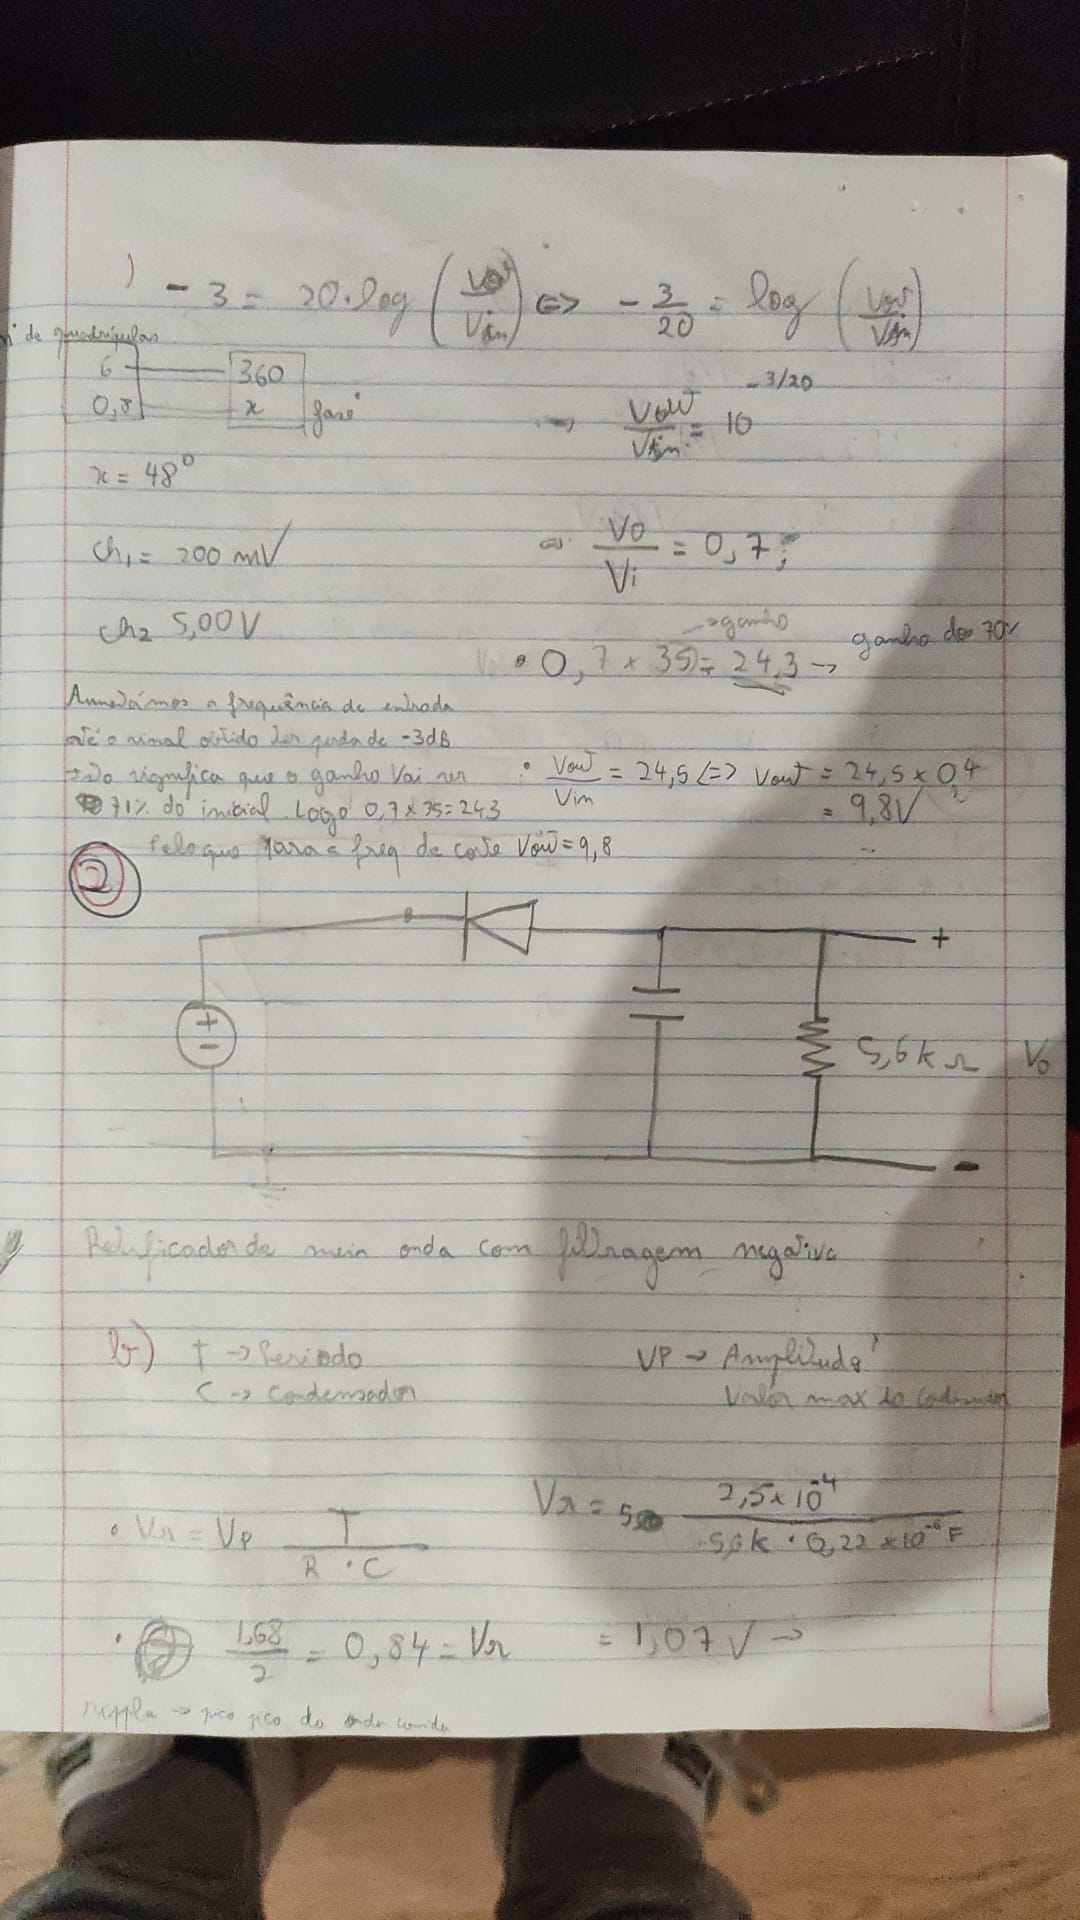 ) - 3 = 20.log (Vout/Vin) <=> - 3/20 = log (Vout/Vin)
de quadrículas
6 360
0,8 x fase
Vout/Vin = 10^-3/20
x = 48°
Vo/Vi = 0,7;
Ch1 = 200 mV
Ch2 5,00V
-> ganho
• 0,7 x 35 = 24,3 -> ganho dos 70%
Aumentámos a frequência de entrada
até o sinal obtido ter perda de -3dB
Isto significa que o ganho vai ser
71% do inicial. Logo 0,7 x 35 = 243
: Vout/Vin = 24,5 <=> Vout = 24,5 x 0,4
= 9,8V
Pelo que para a freq de corte Vout = 9,8
2
+
-
+
5,6k Ω
Vo
-
Retificador de meia onda com filtragem negativa
b) T -> Periodo
C -> Condensador
VP -> Amplitude
Valor max do
• Vr = Vp T/R . C
Vr = 5 2,5 x 10^-4/5,6k . 0,22 x 10^-6 F
= 1,07 V ->
• 1,68/2 = 0,84 = Vr
ripple -> pico pico do onda